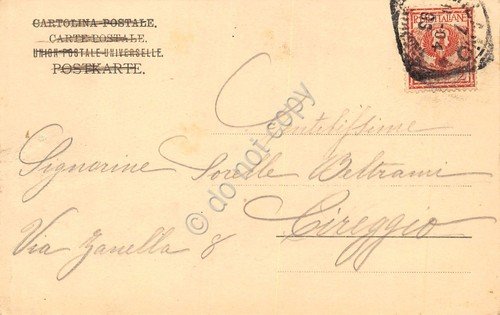 CARTOLINA POSTALE.
CARTE POSTALE.
UNION POSTALE UNIVERSELLE.
POSTKARTE.
POSTE ITALIANE
Gentilissime
Signorine Sorelle Beltrami
Via Zanella 8
Cireggio
© do not copy